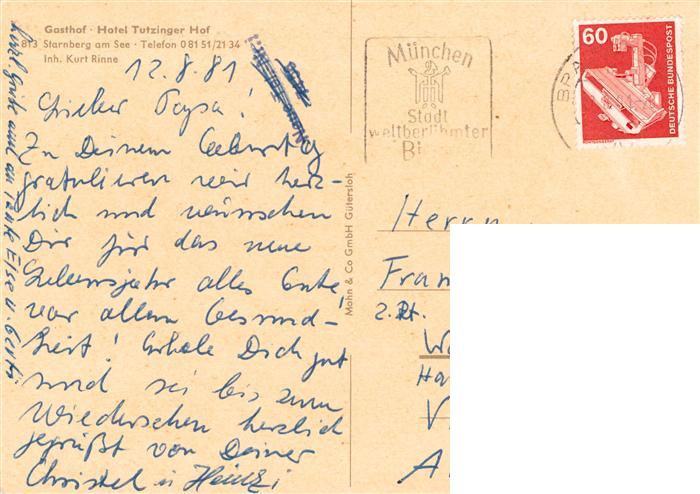 Gasthof · Hotel Tutzinger Hof
813 Starnberg am See · Telefon 0 81 51/21 34
Inh. Kurt Rinne
12.8.81
Lieber Papa!
Zu Deinem Geburtstag
gratulieren wir herz-
lich und wünschen
Dir für das neue
Lebensjahr alles Gute
vor allem Gesund-
heit! Erhole Dich gut
und sei bis zum
Wiedersehen herzlich
gegrüßt von Deiner
Christel u. Heinzi
Herzl. Grüße auch an Tante Else u.
Mohn & Co GmbH Gütersloh
München
Stadt
weltberühmter
Bi
60
DEUTSCHE BUNDESPOST
Herrn
Fran
z. Zt.
W
Ha
V
A